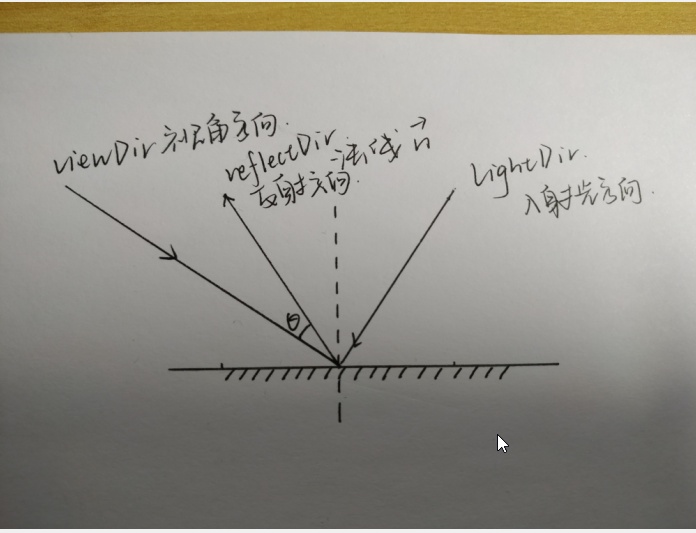 viewDir 视角方向.
reflectDir
反射方向.
法线 n
LightDir.
入射光方向.
θ